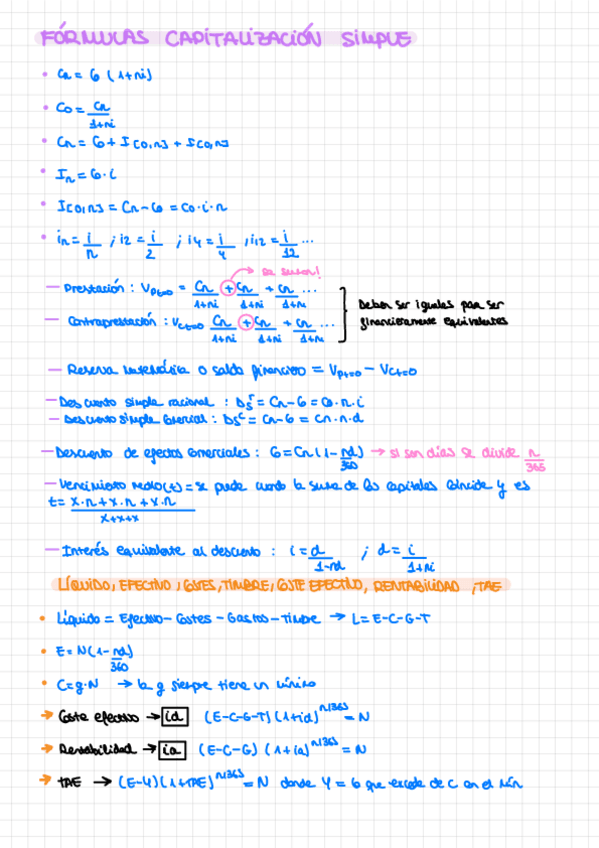 FÓRMULAS CAPITALIZACIÓN SIMPLE
• Cn = C0 (1+ni)
• C0 = Cn / 1+ni
• Cn = C0 + I[0,n] + I[0,n]
• In = C0 · i
• I[0,n] = Cn - C0 = C0 · i · n
• in = i/n ; i2 = i/2 ; i4 = i/4 , i12 = i/12 ...
se suman!
— Prestación : Vpt=0 = Cn/1+ni + Cn/1+ni + Cn/1+ni ...
Deben ser iguales para ser
financieramente equivalentes
— Contraprestación : Vct=0 Cn/1+ni + Cn/1+ni + Cn/1+ni ...
— Reserva matemática o saldo financiero = Vpt=0 - Vct=0
— Descuento simple racional : Dsr = Cn - C0 = C0 · n · i
— Descuento simple comercial : Dsc = Cn - C0 = Cn · n · d
— Descuento de efectos comerciales : C0 = Cn (1 - nd/360) → si son días se divide n/365
— Vencimiento medio (t) = se puede cuando la suma de los capitales coincide y es
t = x·n + x·n + x·n / x+x+x
— Interés equivalente al descuento : i = d/1-nd ; d = i/1+ni
LÍQUIDO, EFECTIVO, COSTES, TIMBRE, COSTE EFECTIVO, RENTABILIDAD, TAE
• Líquido = Efectivo - Costes - Gastos - Timbre → L = E-C-G-T
• E = N (1 - nd/360)
• C = g · N → la g siempre tiene un mínimo
→ Coste efectivo → id (E-C-G-T) (1+id)^n/365 = N
→ Rentabilidad → ia (E-C-G) (1+ia)^n/365 = N
→ TAE → (E-Y) (1+TAE)^n/365 = N donde Y = lo que excede de C en el mín